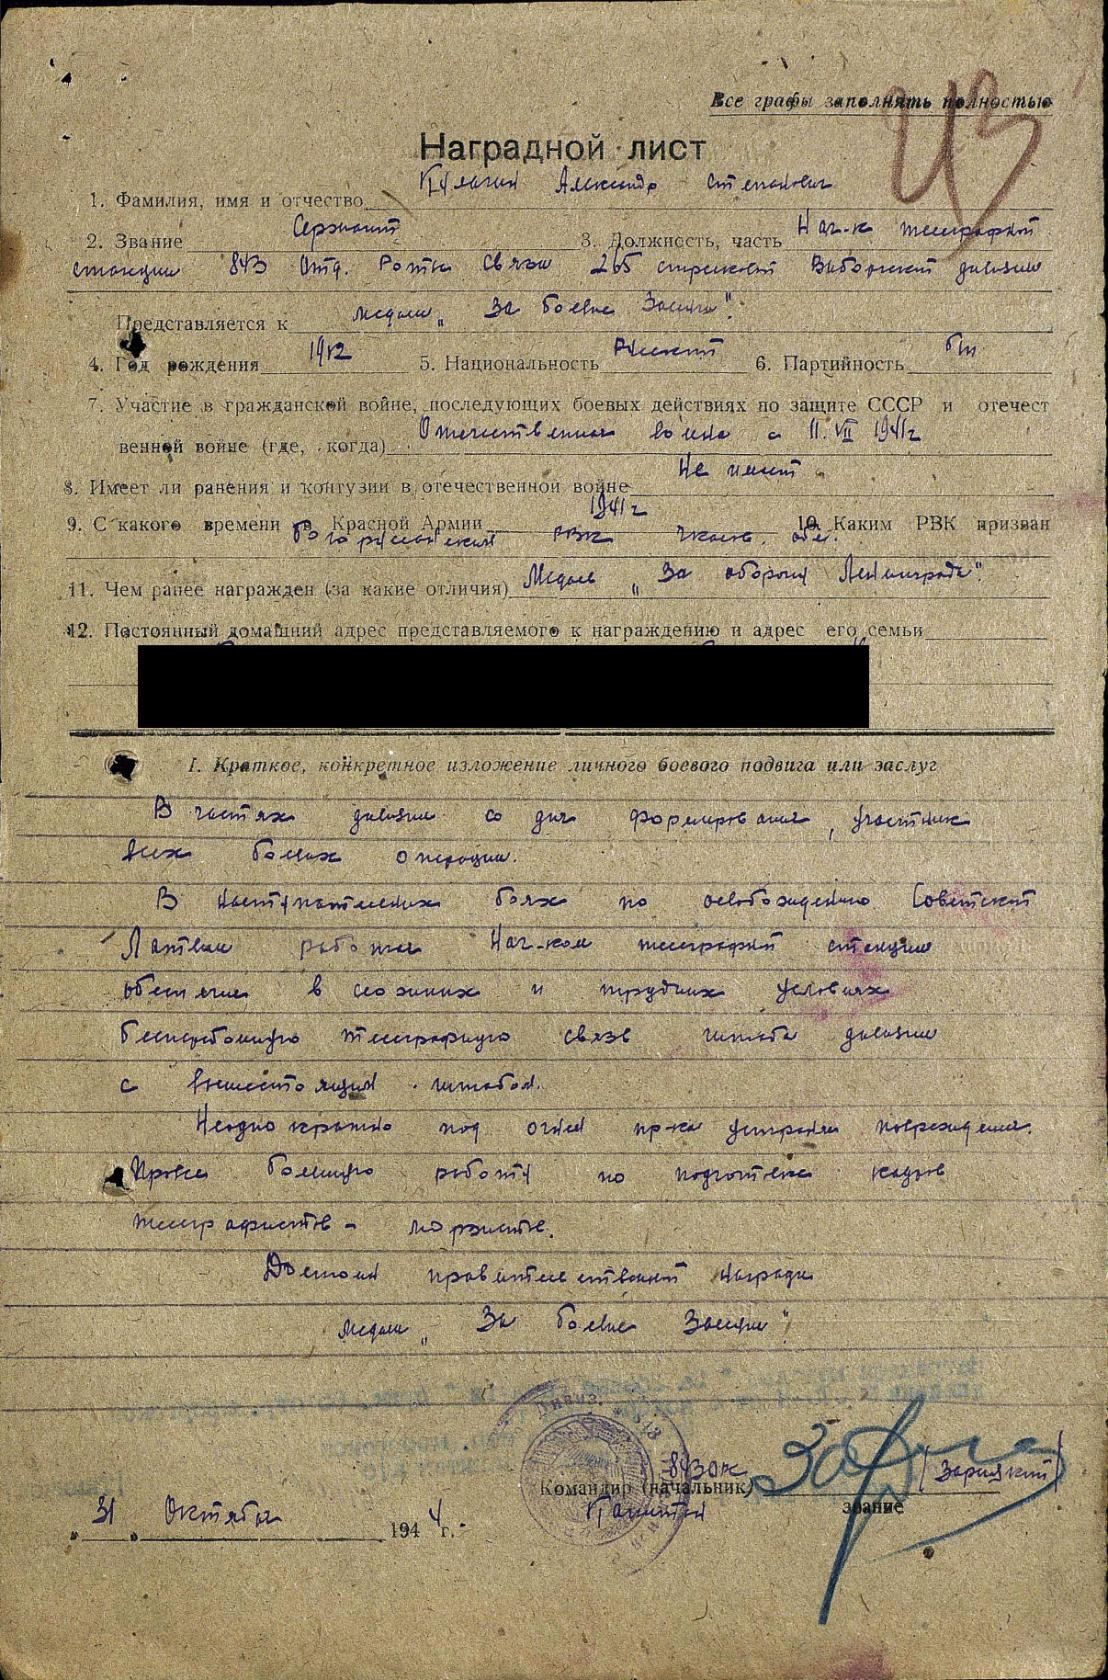 Все графы заполнять полностью
Наградной лист
1. Фамилия, имя и отчество Александр Степанович
2. Звание Сержант 3. Должность, часть Нач-к телеграфной
станции 843 отд. Роты Связи 265 стрелковой Выборгской дивизии
Представляется к медали „За боевые Заслуги".
4. Год рождения 1912 5. Национальность Русский 6. Партийность б/п
7. Участие в гражданской войне, последующих боевых действиях по защите СССР и отечест
венной войне (где, когда) Отечественная война с 11.VII 1941 г
8. Имеет ли ранения и контузии в отечественной войне Не имеет
9. С какого времени в Красной Армии 1941 г 10. Каким РВК призван
РВК обл.
11. Чем ранее награжден (за какие отличия) Медаль „За оборону Ленинграда"
12. Постоянный домашний адрес представляемого к награждению и адрес его семьи
I. Краткое, конкретное изложение личного боевого подвига или заслуг
В частях дивизии со дня формирования, участник
всех боевых операции.
В наступательных боях по освобождению Советской
Латвии работая Нач-ком телеграфной станции
обеспечил в сложных и трудных условиях
бесперебойную телеграфную связь штаба дивизии
с вышестоящим штабом.
Неоднократно под огнем пр-ка устранял повреждения.
Провел большую работу по подготовке кадров
телеграфистов - морзистов.
Достоин правительственной награды
медали „За боевые Заслуги"
843 ОРС
Командир (начальник) (Зарицкий)
Капитан звание
„31" Октября 1944 г.